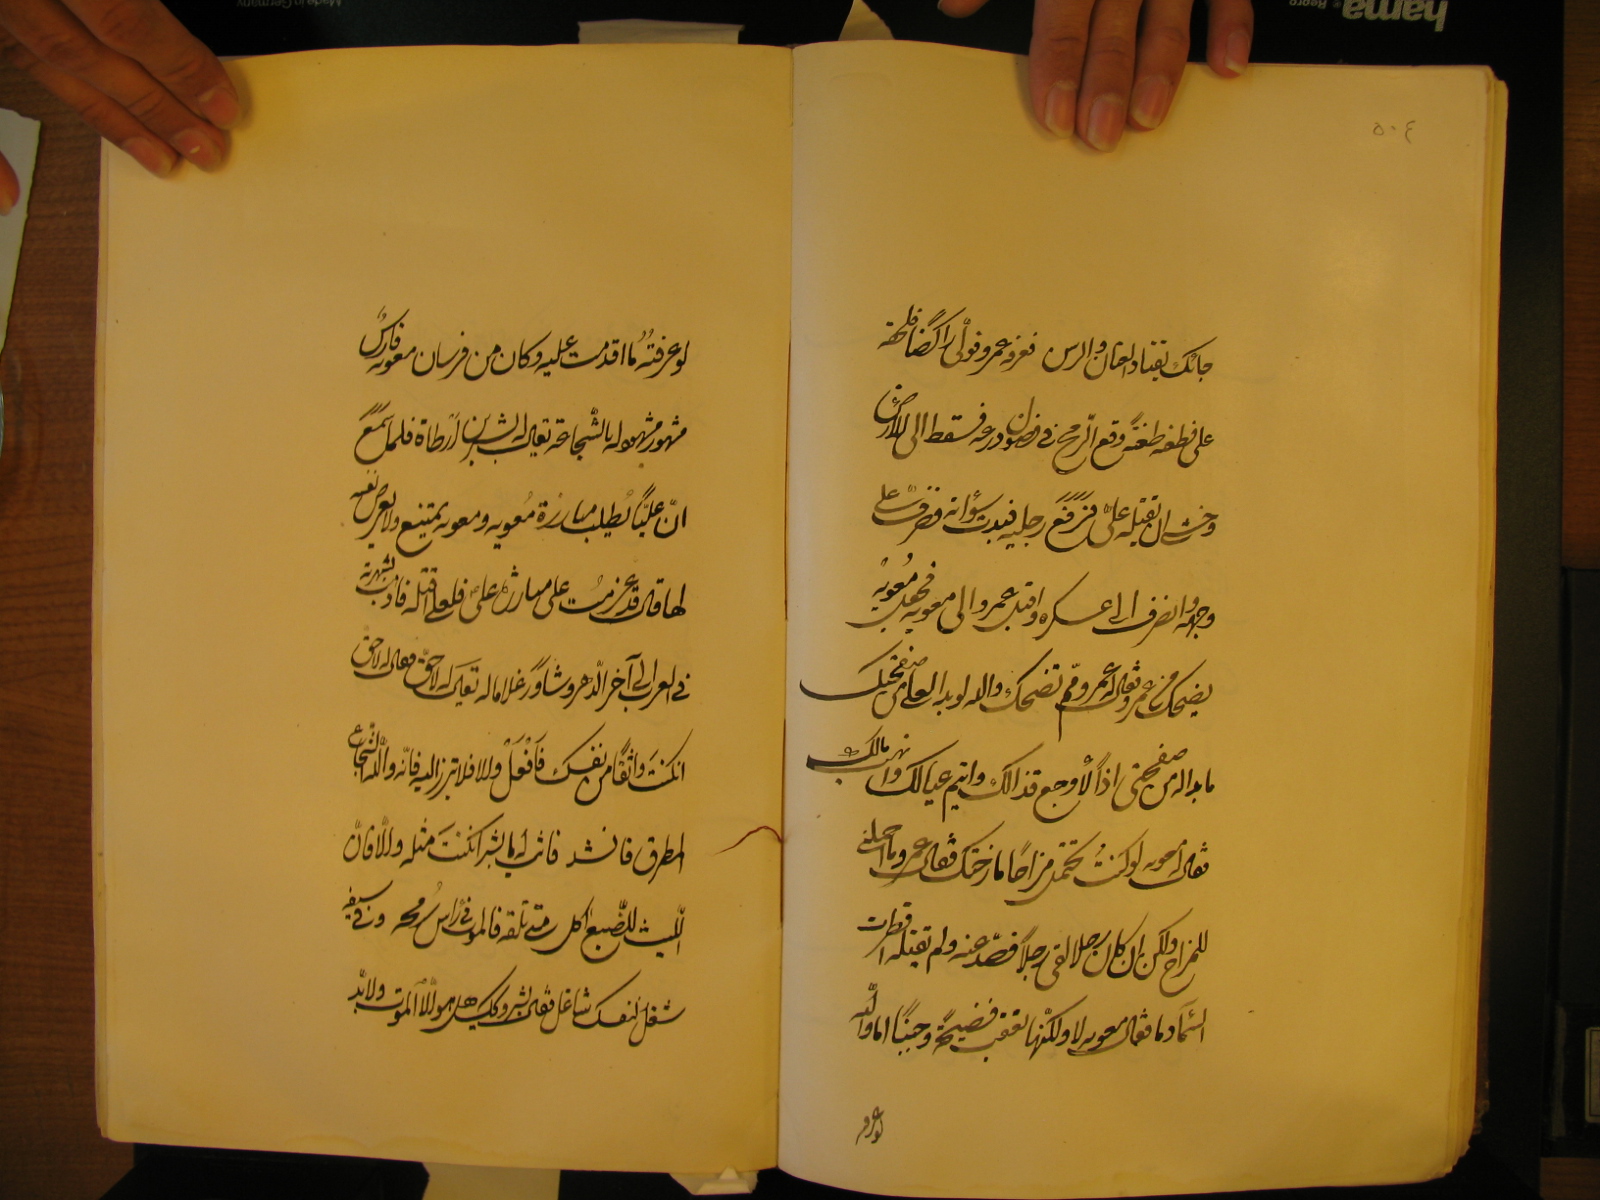 ٥٠٤
جائك يقتاد العنان والرس فعرفه عمرو فولّى راكضًا فلحقه
علی فطعنه طعنةً وقع الرّمح فی فضول درعه فسقط الی الارض
وخشی ان یقتله علیّ فرفع رجلیه فبدت سوأته فصرف علی
وجهه وانصرف الی عسکره واقبل عمرو الی معویه فجعل معویهُ
یضحک من عمرو فقال عمرو ممّ تضحک والله لو بدا لعلی من صفحتک
ما بدا له من صفحتی اذاً لأوجع قذالک وایتم عیالک وانهب مالک
فقال معویه لو کنتُ تحتمل مزاحًا مازحتک فقال عمرو ما احملنی
للمزاح ولکن ان کان رجلا لقی رجلاً فصدّ عنه ولم یقتله اقطرت
السّماء دما فقال معویه لا ولکنّها تعقب فضیحةً وجبنًا اما والله
لو عرفته
لو عرفتهُ ما اقدمت علیه وکان من فرسان معویه فارسٌ
مشهور مشهود له بالشّجاعة یقال له بشر بن أرطاة فلما سَمِعَ
انّ علیًّا یُطلب مبارزة مُعویه ومعویه یمتنع ولا یعرض نفسه
لها قال قد عزمت علی مبارزة علی فلعلّی اقتله فاذهب بشهرته
فی العرب الی آخر الدّهر وشاور غلاما له یقال له لاحق فقال له لاحق
ان کنتَ واثقًا من نفسک فَافْعَلْ والا فلا تبرز الیه فانّه والله الشّجاع
المطرق فانشد فانت له یا بشر ان کنتَ مثله والّا فانّ
اللّیث للضّبع آکل متی تلقه فالموت فی رأس رُمحه وفی سیفه
شغل لنفسک شاغل فقال بشر ویلک هل هو الّا الموت ولابدّ